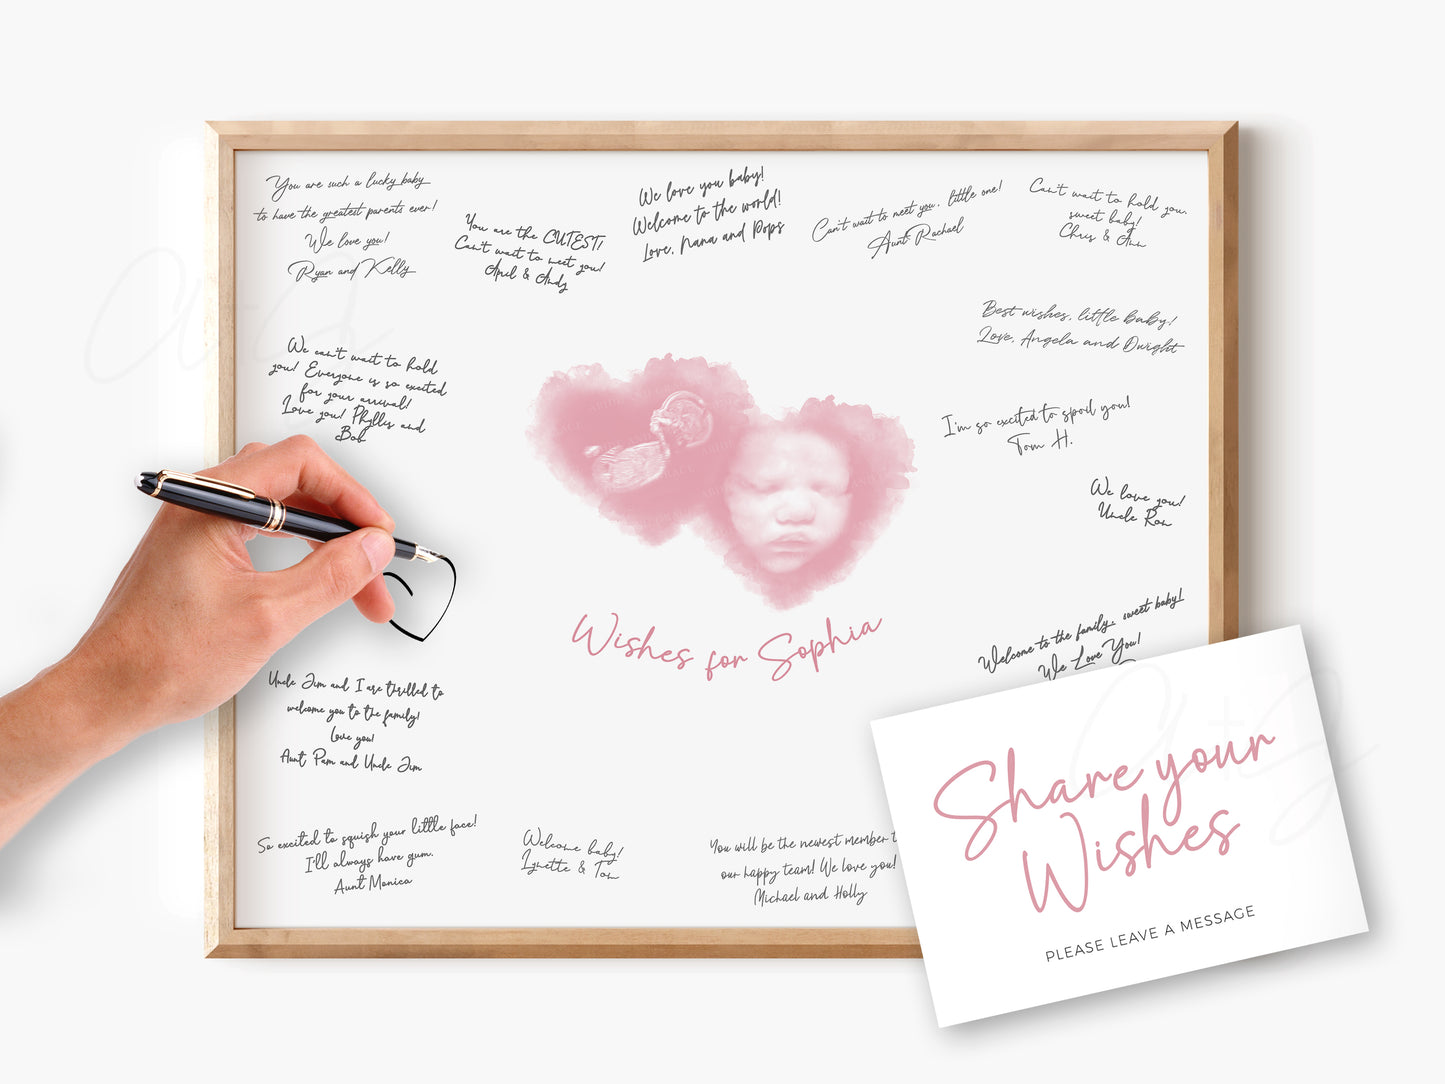 You are such a lucky baby
to have the greatest parents ever!
We love you!
Ryan and Kelly
You are the CUTEST!
Can't wait to meet you!
April & Andy
We love you baby!
Welcome to the world!
Love, Nana and Pops
Can't wait to meet you, little one!
Aunt Rachael
Can't wait to hold you,
sweet baby!
Chris & Ann
Best wishes, little baby!
Love, Angela and Dwight
We can't wait to hold
you! Everyone is so excited
for your arrival!
Love you! Phyllis and
Bob
I'm so excited to spoil you!
Tom H.
We love you!
Uncle Ron
Wishes for Sophia
Welcome to the family, sweet baby!
We Love You!
Uncle Jim and I are thrilled to
welcome you to the family!
Love you!
Aunt Pam and Uncle Jim
So excited to squish your little face!
I'll always have gum.
Aunt Monica
Welcome baby!
Lynette & Tom
You will be the newest member t
our happy team! We love you!
Michael and Holly
Share your
Wishes
PLEASE LEAVE A MESSAGE